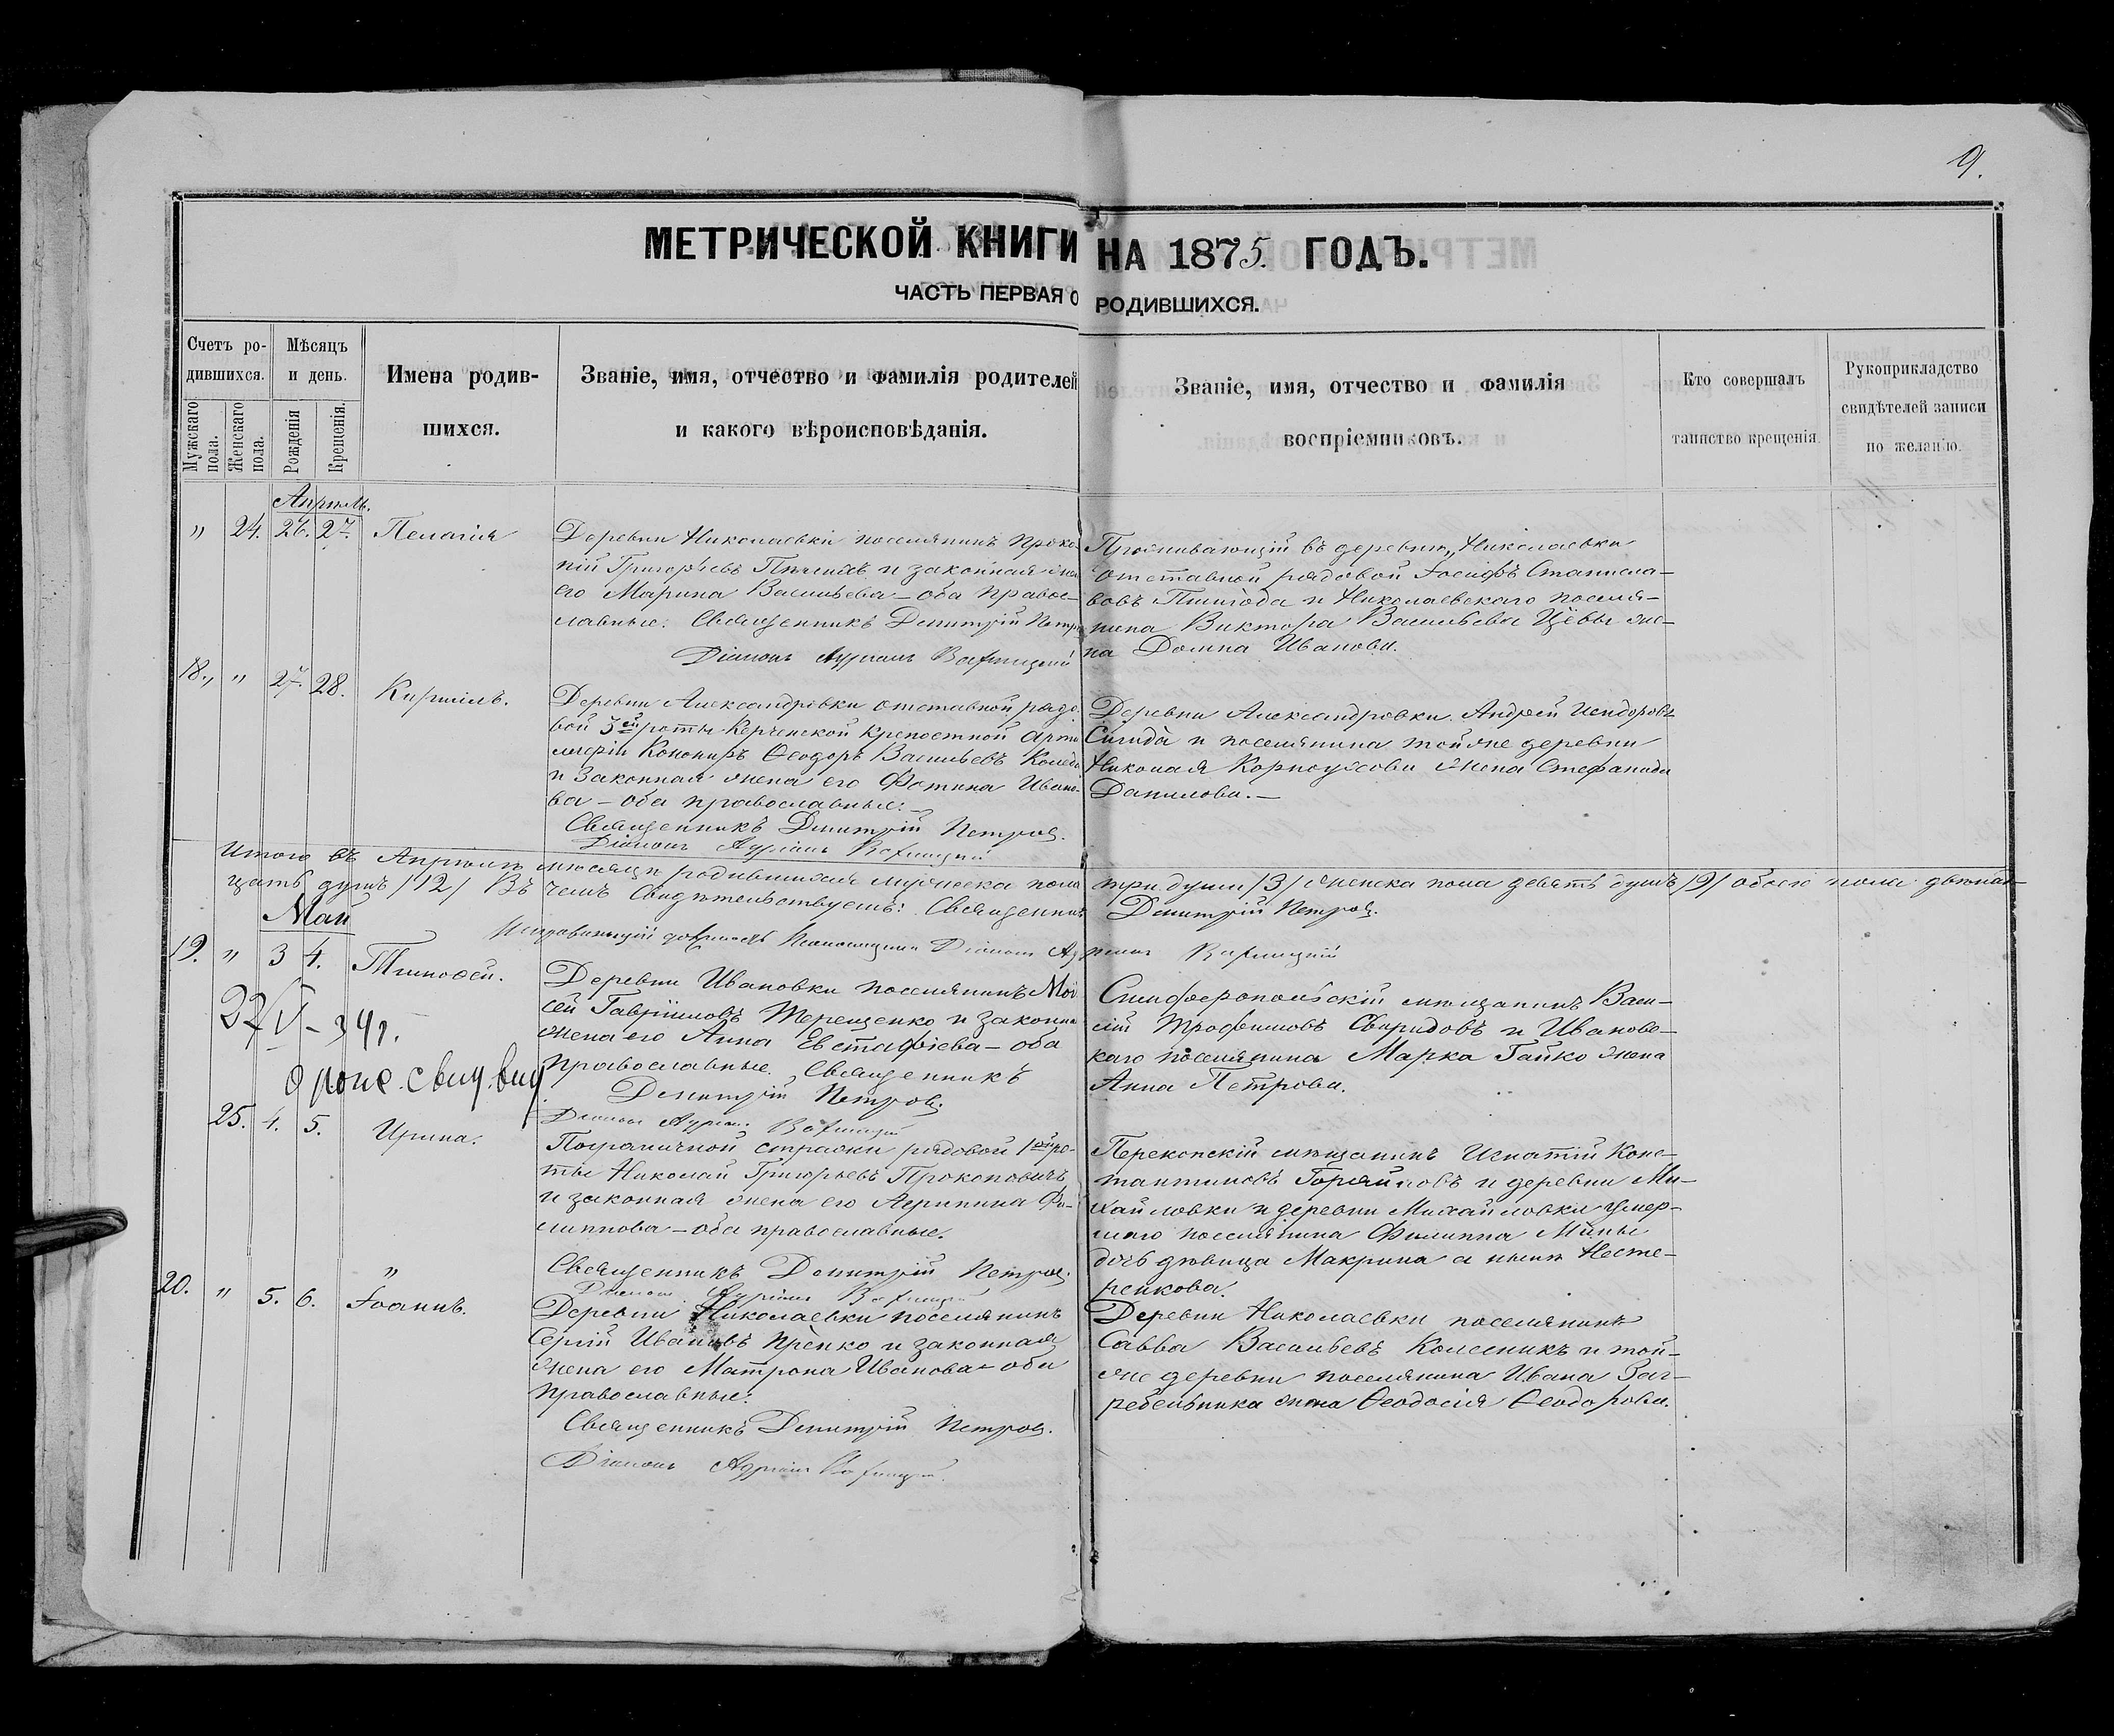 9.
МЕТРИЧЕСКОЙ КНИГИ НА 1875. ГОДЪ.
ЧАСТЬ ПЕРВАЯ О РОДИВШИХСЯ.
Счетъ ро-
дившихся.
Мужскаго
пола.
Женскаго
пола.
Мѣсяцъ
и день.
Рожденія
Крещенія.
Имена родив-
шихся.
Званіе, имя, отчество и фамилія родителей
и какого вѣроисповѣданія.
Званіе, имя, отчество и фамилія
воспріемниковъ.
Кто совершалъ
таинство крещенія.
Рукоприкладство
свидѣтелей записи
по желанію.
Апрѣль.
" 24. 26. 27. Пелагія
Деревни Николаевки поселянинъ Проко
пій Григорьевъ и законная жена
его Марина Васильева – оба правос-
лавные. Священникъ Димитрій Петров
Діаконъ
Проживающій въ деревни Николаевки
отставной рядовой Іосифъ Станисла-
вовъ и Николаевскаго поселя-
нина Виктора Васильева Цёвы же-
на Домна Иванова.
18. " 27. 28. Кириллъ.
Деревни Александровки отставной рядо
вой 3ей роты Керченской крепостной арти
лерій Кононир Ѳеодоръ Васильевъ
и законная жена его Фотина Ивано-
ва – оба православные.
Священникъ Димитрій Петров.
Діаконъ
Деревни Александровки Андрей Исидоровъ
Сигида и поселянина той же деревни
Николая жена Стефанида
Данилова. –
Итого въ Апрѣлѣ мѣсяцѣ родившихся мужеска пола три души /3/ женска пола девять душъ /9/ обоего пола двѣнад-
цать душъ /12/ Въ чемъ свидѣтельствуемъ: Священникъ Димитрій Петров.
Діаконъ
Май
19. " 3 4. Тимоѳей.
Деревни Ивановки поселянинъ Мои
сей Гавріиловъ Терещенко и законна
жена его Анна Евстафіева – оба
православные. Священникъ
Димитрій Петров.
Діаконъ
Симферопольскій мѣщанинъ Васи-
лій Трофимовъ Свиридовъ и Ивановс-
каго поселянина Марка Гайко жена
Анна Петрова.
27/V – 34 г.
25. 4. 5. Ирина.
Пограничной стражи рядовой 1ой ро-
ты Николай Григорьевъ Прокоповичъ
и законная жена его Агрипина Фи-
липпова – оба православные.
Священникъ Димитрій Петров.
Діаконъ
Перекопскій мѣщанинъ Игнатій Конс-
тантиновъ Горяйновъ и деревни Ми-
хайловки и деревни Михайловки умер-
шаго поселянина Филиппа Мины
дочь дѣвица Макрина а нынѣ Несте-
ренкова.
20. " 5. 6. Іоаннъ.
Деревни Николаевки поселянинъ
Сергій Ивановъ и законная
жена его Матрона Иванова – оба
православные.
Священникъ Димитрій Петров.
Діаконъ
Деревни Николаевки поселянинъ
Савва Васильевъ Колесникъ и той-
же деревни поселянина Ивана Заг-
ребельника жена Ѳеодосія Ѳеодорова.